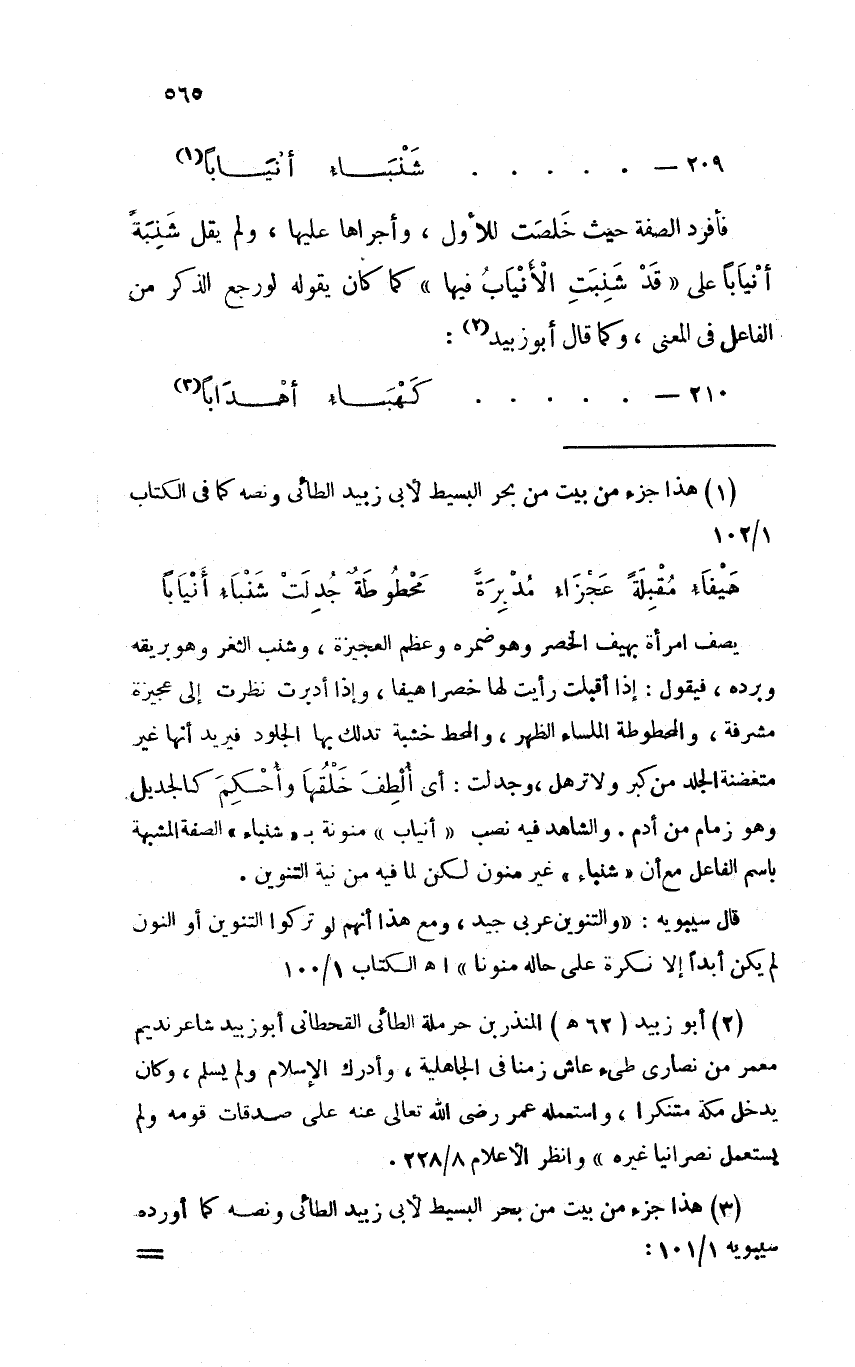 ٥٦٥
٢٠٩ — . . . . . شَنْبَـــاء أنْيَـــاباً(١)
فأفرد الصفة حيث خَلصَت للأول ، وأجراها عليها ، ولم يقل شَنِبَةً
أنْيَاباً على « قَدْ شَنِبَتِ الْأَنْيَابُ فيها » كما كان يقوله لو رجع الذكر من
الفاعل فى المعنى ، وكما قال أبو زبيد(٢) :
٢١٠ — . . . . . كَهْبَـــاء أهْـــدَاباً(٣)
(١) هذا جزء من بيت من بحر البسيط لأبى زبيد الطائى ونصه كما فى الكتاب
١٠٢/١
هَيْفَاء مُقْبِلَةً عَجْزَاء مُدْبِرَةً مَحْطُوطَةٌ جُدِلَتْ شَنْبَاء أَنْيَابَا
يصف امرأة بهيف الخصر وهو ضمره وعظم العجيزة ، وشنب الثغر وهو بريقه
وبرده ، فيقول : إذا أقبلت رأيت لها خصرا هيفا ، وإذا أدبرت نظرت إلى عجيزة
مشرفة ، والمحطوطة الملساء الظهر ، والمحط خشبة تدلك بها الجلود فيريد أنها غير
متغضنة الجلد من كبر ولا ترهل ، وجدلت : أى أُلْطِفَ خَلْقُهَا وأُحْكِمَ كالجديل
وهو زمام من أدم . والشاهد فيه نصب « أنياب » منونة بـ « شنباء » الصفة المشبهة
باسم الفاعل مع أن « شنباء » غير منون لكن لما فيه من نية التنوين .
قال سيبويه : «والتنوين عربى جيد ، ومع هذا أنهم لو تركوا التنوين أو النون
لم يكن أبداً إلا نكرة على حاله منونا » ا ه الكتاب ١٠٠/١
(٢) أبو زبيد ( ٦٢ ه ) المنذر بن حرملة الطائى القحطانى أبو زبيد شاعر نديم
معمر من نصارى طىء عاش زمنا فى الجاهلية ، وأدرك الإسلام ولم يسلم ، وكان
يدخل مكة متنكرا ، واستعمله عمر رضى الله تعالى عنه على صدقات قومه ولم
يستعمل نصرانيا غيره » وانظر الأعلام ٢٢٨/٨ .
(٣) هذا جزء من بيت من بحر البسيط لأبى زبيد الطائى ونصـه كما أورده
سيبويه ١٠١/١ :
=